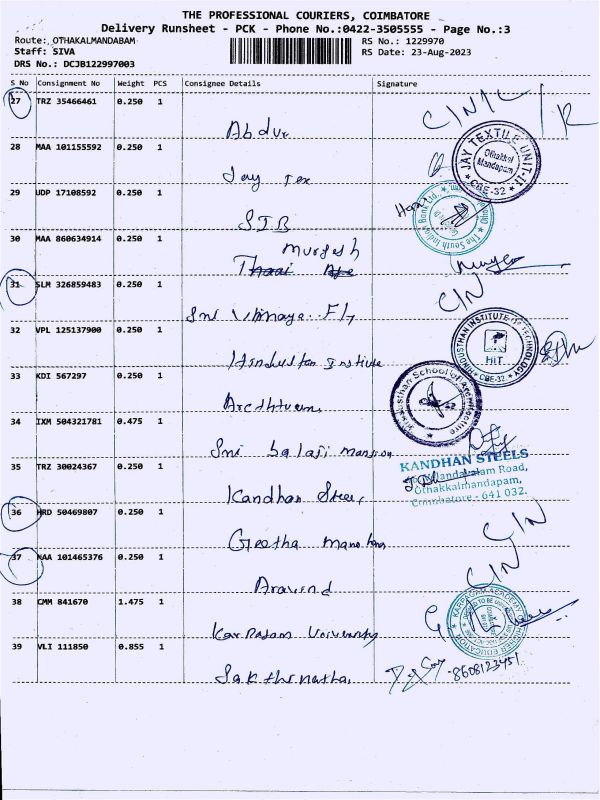 THE PROFESSIONAL COURIERS, COIMBATORE
Delivery Runsheet - PCK - Phone No.:0422-3505555 - Page No.:3
Route: OTHAKALMANDABAM RS No.: 1229970
Staff: SIVA RS Date: 23-Aug-2023
DRS No.: DCJB122997003
S No Consignment No Weight PCS Consignee Details Signature
27 TRZ 35466461 0.250 1
Abdur
28 MAA 101155592 0.250 1
JAY TEXTILE UNIT-II
Othakkal
Mandapam
CBE-32
Jay Tex
29 UDP 17108592 0.250 1
The South Indian Bank Ltd.
SIB
30 MAA 860634914 0.250 1
Murgesh
31 SLM 326859483 0.250 1
C/N
Sri
32 VPL 125137900 0.250 1
HINDUSTHAN INSTITUTE OF TECHNOLOGY
HIT
CBE-32
Hindustan Institute
33 KDI 567297 0.250 1
Hindusthan School of Architecture
34 IXM 504321781 0.475 1
Sri balaji mansion
35 TRZ 30024367 0.250 1
KANDHAN STEELS
Road,
Othakkalmandapam,
Coimbatore - 641 032.
Kandhan Steel
36 HRD 50469807 0.250 1
C/N
Geetha
37 MAA 101465376 0.250 1
C/N
Aravind
38 CMM 841670 1.475 1
KARPAGAM ACADEMY OF HIGHER EDUCATION
Karpagam University
39 VLI 111850 0.855 1
8608123451